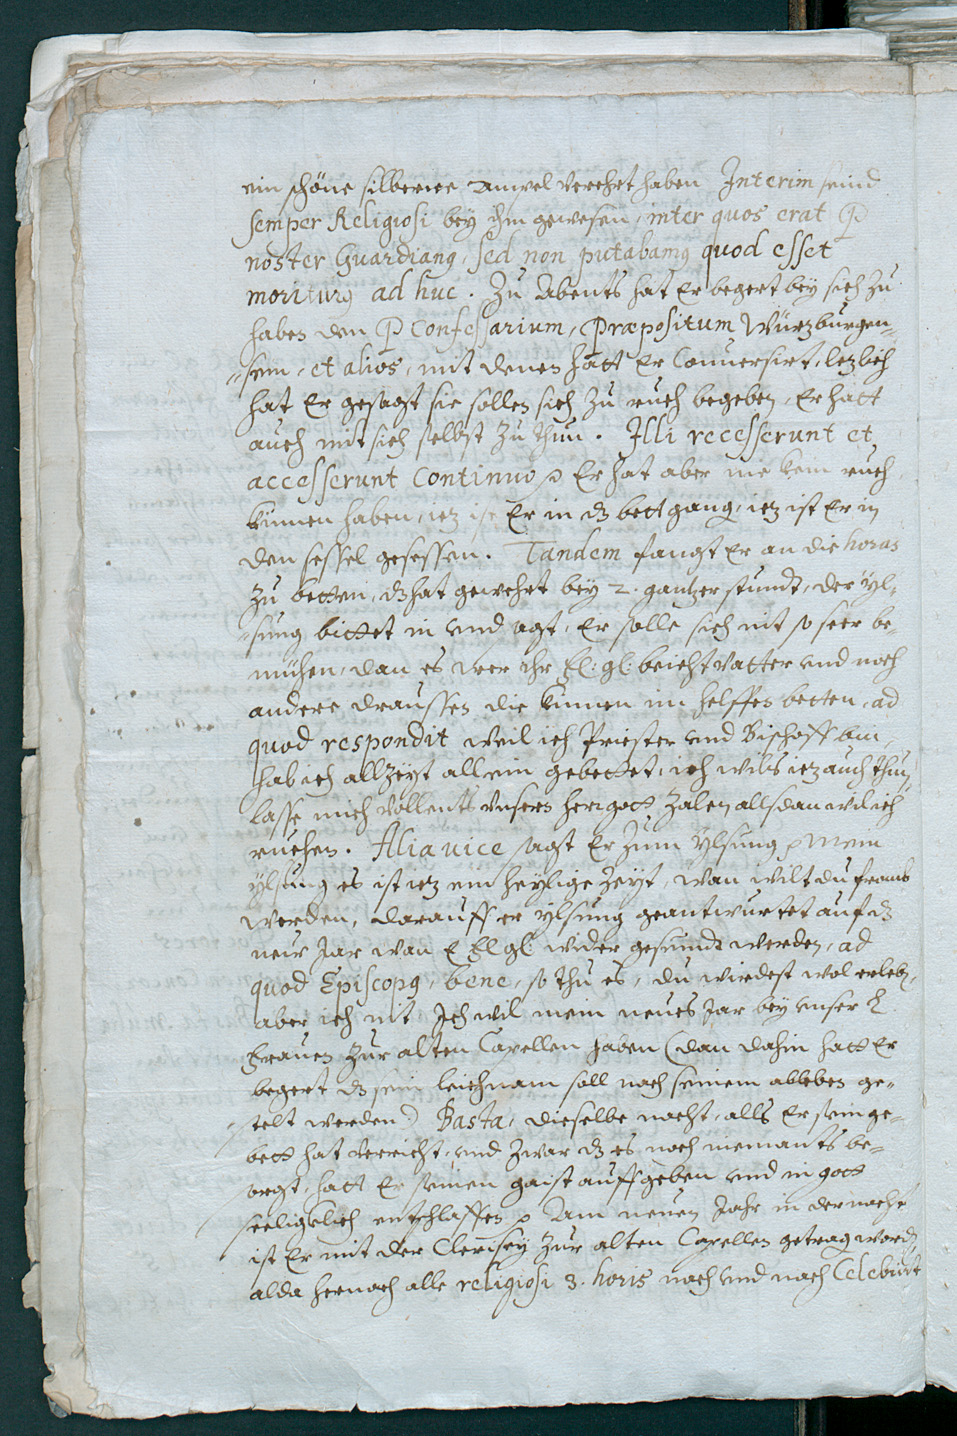 ein schöne silberne Ampel verehrt haben Interim seind
semper Religiosi bey ihm gewesen, inter quos erat P
noster Guardianq, sed non putabamq quod esset
moriturq ad huc. Zu Abents hat Er begert bey sich zu
haben den P Confessarium, Præpositum Würzburgen-
sem, et alios, mit denen hatt Er Conuersirt, lezlich
hat Er gesagt sie sollen sich zu ruoh begeben, Er hatt
auch mit sich selbst zu thun. Illi recesserunt et
accesserunt continuo Er hat aber nie kein ruoh
künnen haben, iez ist Er in dz bett gangen, iez ist Er in
den sessel gesessen. Tandem fangt Er an die horas
zu betten, dz hat gewehrt bey 2. gantzer stundt, der Yl-
sung bittet in und sagt, Er solle sich nit so seer be-
mühen, dan es wer ihr Fl: gl: beicht vatter und noch
andere draussen die künnen im helffen betten, ad
quod respondit weil ich Priester und Bischoff bin,
hab ich allzeyt allein gebettet, ich wils iez auch thun,
lasse mich vollents unsern herrgott zalen, alsdan wil ich
ruohen. Alia uice sagt Er zum Ylsung Mein
Ylsung es ist iez ein heylige zeyt, wan wilt du fromb
werden, darauff er Ylsung geantwurtet auf dz
neue Jar wan E Fl gl wider gesundt werden, ad
quod Episcopq, bene, so thu es, du wirdest wol erleben,
aber ich nit Ich wil mein neues Jar bey unser L
Frauen zur alten Capellen haben (dan dahin hatt Er
begert dz sein leichnam soll nach seinem ableben ge-
stelt werden) Basta, dieselbe nacht, alls Er sein ge-
bett hat verricht, und zwar dz es noch niemants be-
sorgt, hatt Er seinen gaist auffgeben und in gott
seeligklich entschlaffen Am neuen Jahr in der nacht
ist Er mit der Clerisey zur alten Capellen getragen worden
alda hernach alle religiosi 3. horis nach und nach Celebrirt